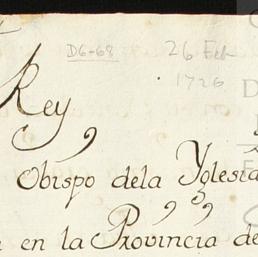 D6-68
26 Feb
1726
Rey
Obispo dela Yglesia
en la Provincia de